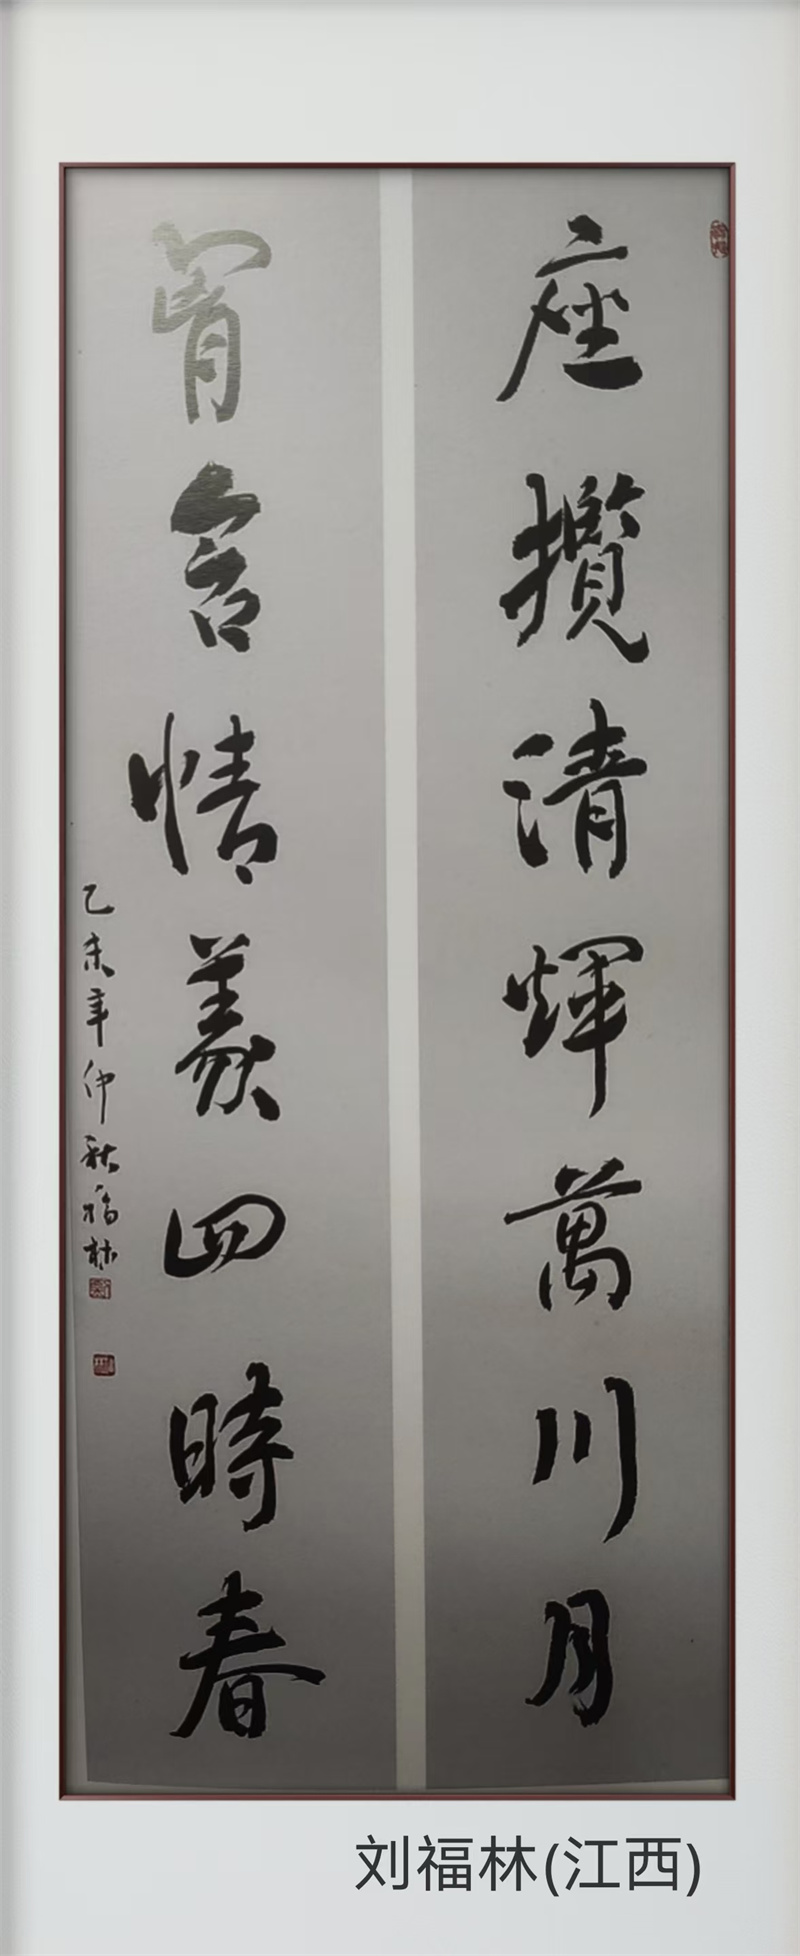 座攬清輝萬川月
胷含情義四時春
乙未年仲秋福林
刘福林(江西)